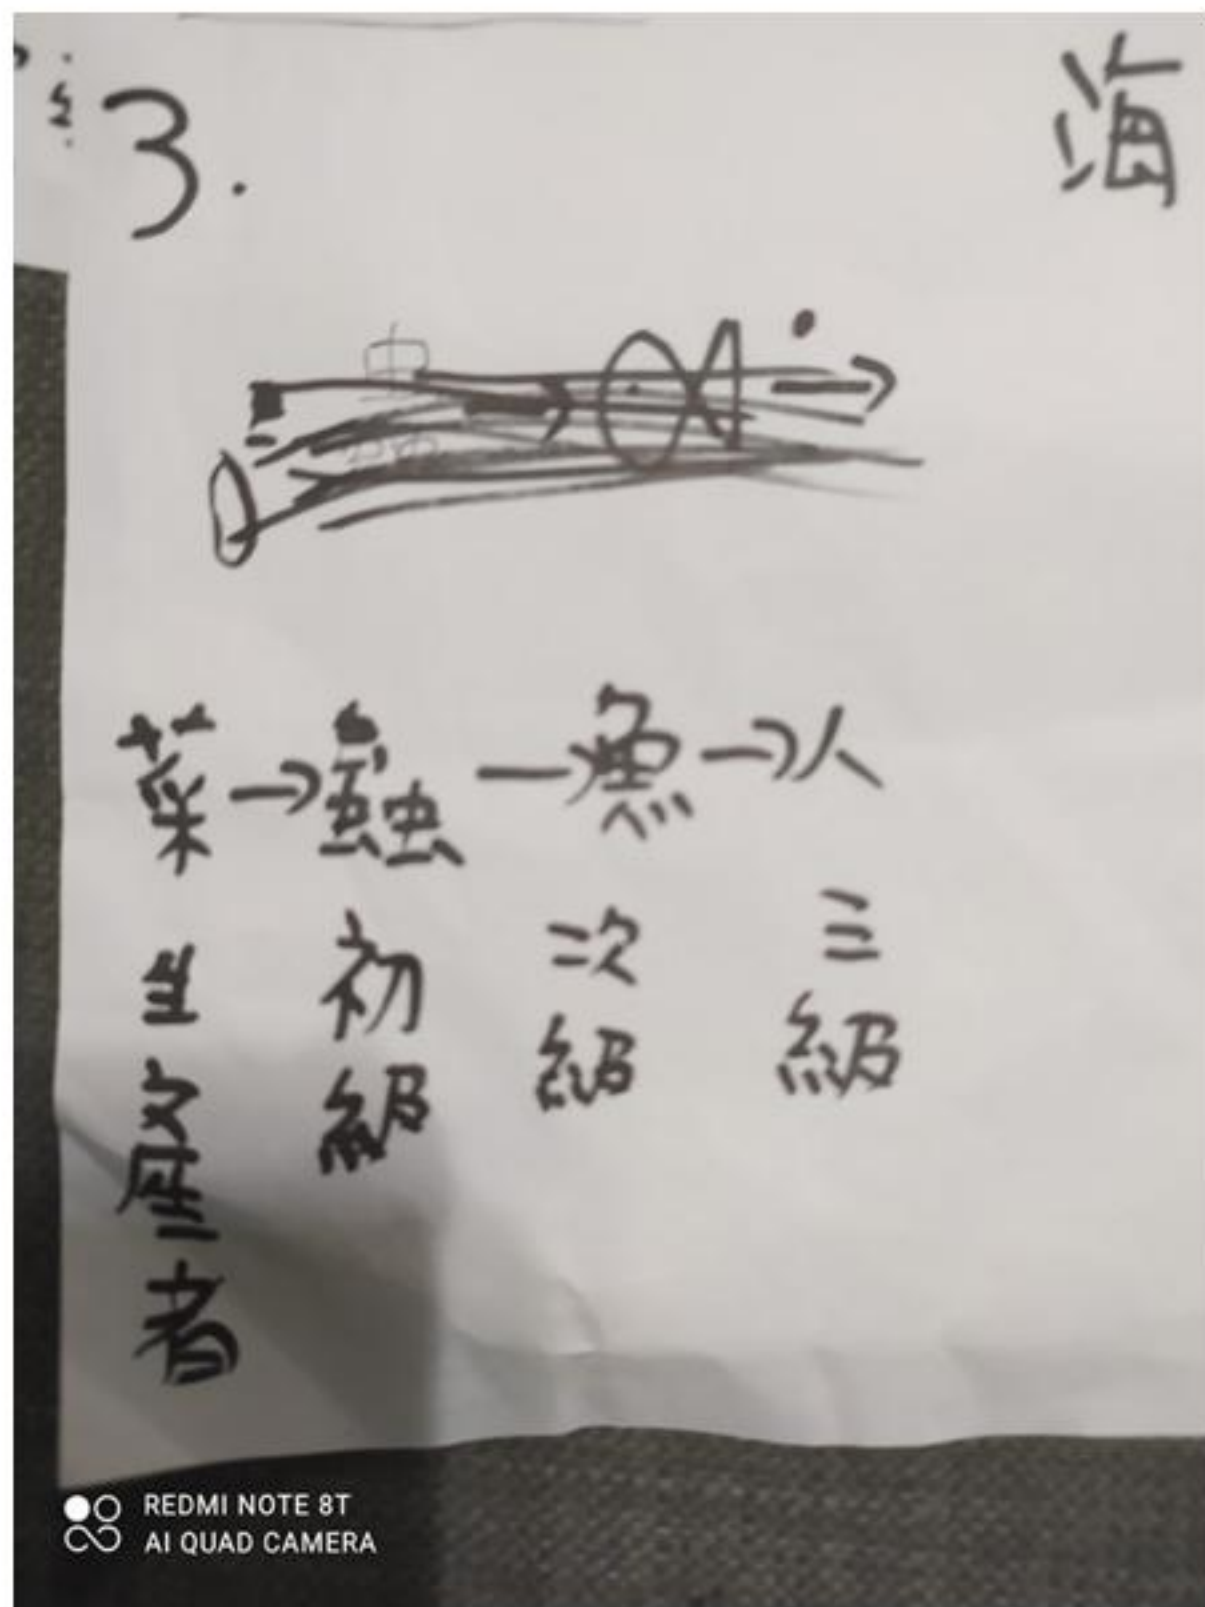 3.
海
菜→蟲→魚→人
生產者 初級 次級 三級
REDMI NOTE 8T
AI QUAD CAMERA